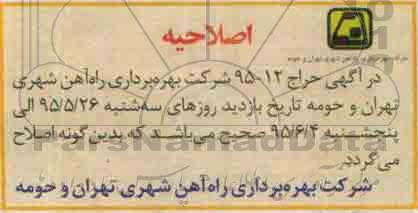 اصلاحیه
شرکت بهره‌برداری راه‌آهن شهری تهران و حومه
در آگهی حراج ۱۲-۹۵ شرکت بهره‌برداری راه‌آهن شهری
تهران و حومه تاریخ بازدید روزهای سه‌شنبه ۹۵/۵/۲۶ الی
پنجشنبه ۹۵/۶/۴ صحیح می‌باشد که بدین‌گونه اصلاح
می‌گردد.
شرکت بهره‌برداری راه‌آهن شهری تهران و حومه
ParsNamadData